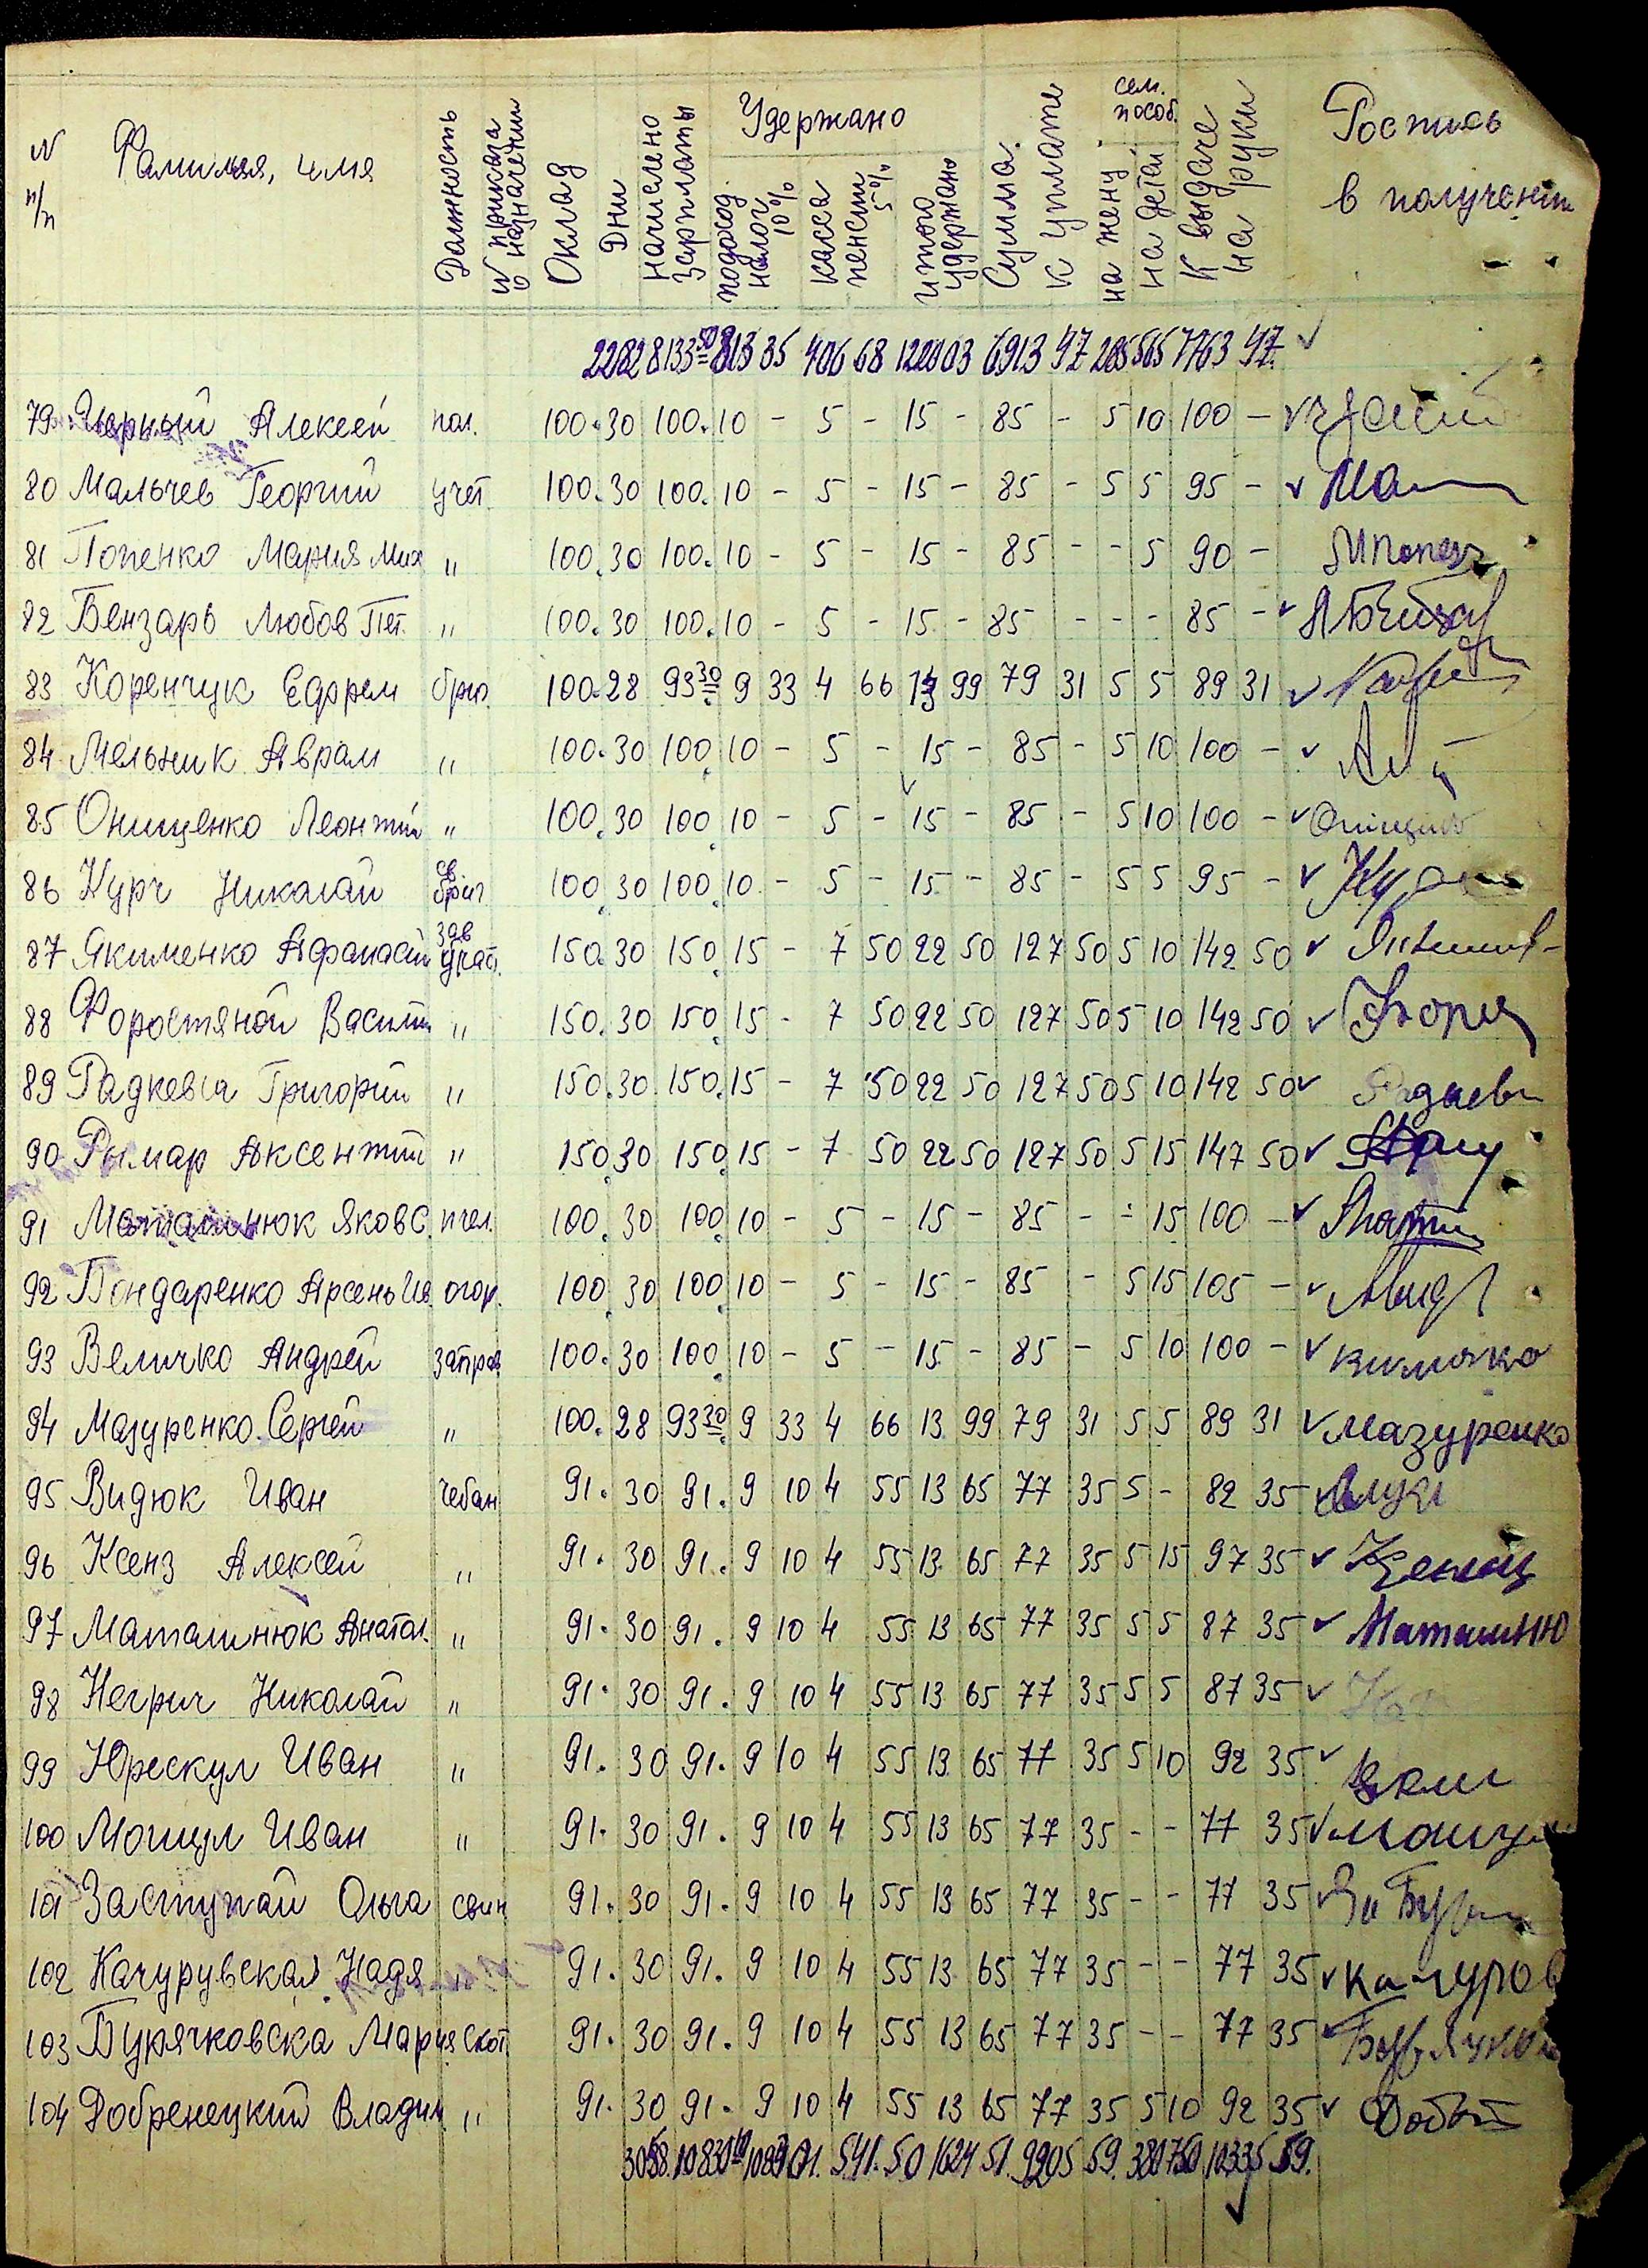 N п/п Фамилия, имя Должность N приказа о назначении Оклад Дни начислено зарплаты Удержано подоход налог 10% касса пенсии 5% итого удержано Сумма к уплате сем. пособ. на жену на детей К выдаче на руки Роспись в получении
2282 8133 50 813 35 406 68 1220 03 6913 47 285 565 7763 47. ✓
79 Чёрный Алексей пол. 100. 30 100. 10 - 5 - 15 - 85 - 5 10 100 - ✓
80 Мальчев Георгий учет. 100. 30 100. 10 - 5 - 15 - 85 - 5 5 95 - ✓
81 Попенко Мария Мих " 100. 30 100. 10 - 5 - 15 - 85 - - 5 90 -
82 Бензарь Любов Пет. " 100. 30 100. 10 - 5 - 15 - 85 - - - 85 - ✓
83 Коренчук Ефрем бриг. 100. 28 93 30 9 33 4 66 13 99 79 31 5 5 89 31 ✓
84 Мельник Аврам " 100. 30 100. 10 - 5 - 15 - 85 - 5 10 100 - ✓
85 Онищенко Леонтий " 100. 30 100. 10 - 5 - 15 - 85 - 5 10 100 - ✓
86 Курч Николай св бриг 100. 30 100. 10 - 5 - 15 - 85 - 5 5 95 - ✓
87 Якименко Афанасий зав участ. 150. 30 150. 15 - 7 50 22 50 127 50 5 10 142 50 ✓
88 Форостяной Василий " 150. 30 150. 15 - 7 50 22 50 127 50 5 10 142 50 ✓
89 Радкевич Григорий " 150. 30 150. 15 - 7 50 22 50 127 50 5 10 142 50 ✓
90 Рымар Аксентий " 150. 30 150. 15 - 7 50 22 50 127 50 5 15 147 50 ✓
91 Маталинюк Яков С. пчел. 100. 30 100. 10 - 5 - 15 - 85 - - 15 100 - ✓
92 Бондаренко Арсень Ив огор. 100. 30 100. 10 - 5 - 15 - 85 - 5 15 105 - ✓
93 Величко Андрей заправ 100. 30 100. 10 - 5 - 15 - 85 - 5 10 100 - ✓
94 Мазуренко Сергей " 100. 28 93 30 9 33 4 66 13 99 79 31 5 5 89 31 ✓ Мазуренко
95 Видюк Иван чебан 91. 30 91. 9 10 4 55 13 65 77 35 5 - 82 35 ✓
96 Ксенз Алексей " 91. 30 91. 9 10 4 55 13 65 77 35 5 15 97 35 ✓
97 Маталинюк Анатол. " 91. 30 91. 9 10 4 55 13 65 77 35 5 5 87 35 ✓ Маталиню
98 Негрич Николай " 91. 30 91. 9 10 4 55 13 65 77 35 5 5 87 35 ✓
99 Юрескул Иван " 91. 30 91. 9 10 4 55 13 65 77 35 5 10 92 35 ✓
100 Мошул Иван " 91. 30 91. 9 10 4 55 13 65 77 35 - - 77 35 ✓
101 Заступай Ольга свин 91. 30 91. 9 10 4 55 13 65 77 35 - - 77 35 ✓
102 Качурувская Надя " 91. 30 91. 9 10 4 55 13 65 77 35 - - 77 35 ✓ Качуров
103 Бурячковска Мария скот 91. 30 91. 9 10 4 55 13 65 77 35 - - 77 35 ✓
104 Добренецкий Владим. " 91. 30 91. 9 10 4 55 13 65 77 35 5 10 92 35 ✓
3058. 10830 10 1083 01. 541. 50 1624 51. 9205 59. 380 750 10335 59. ✓